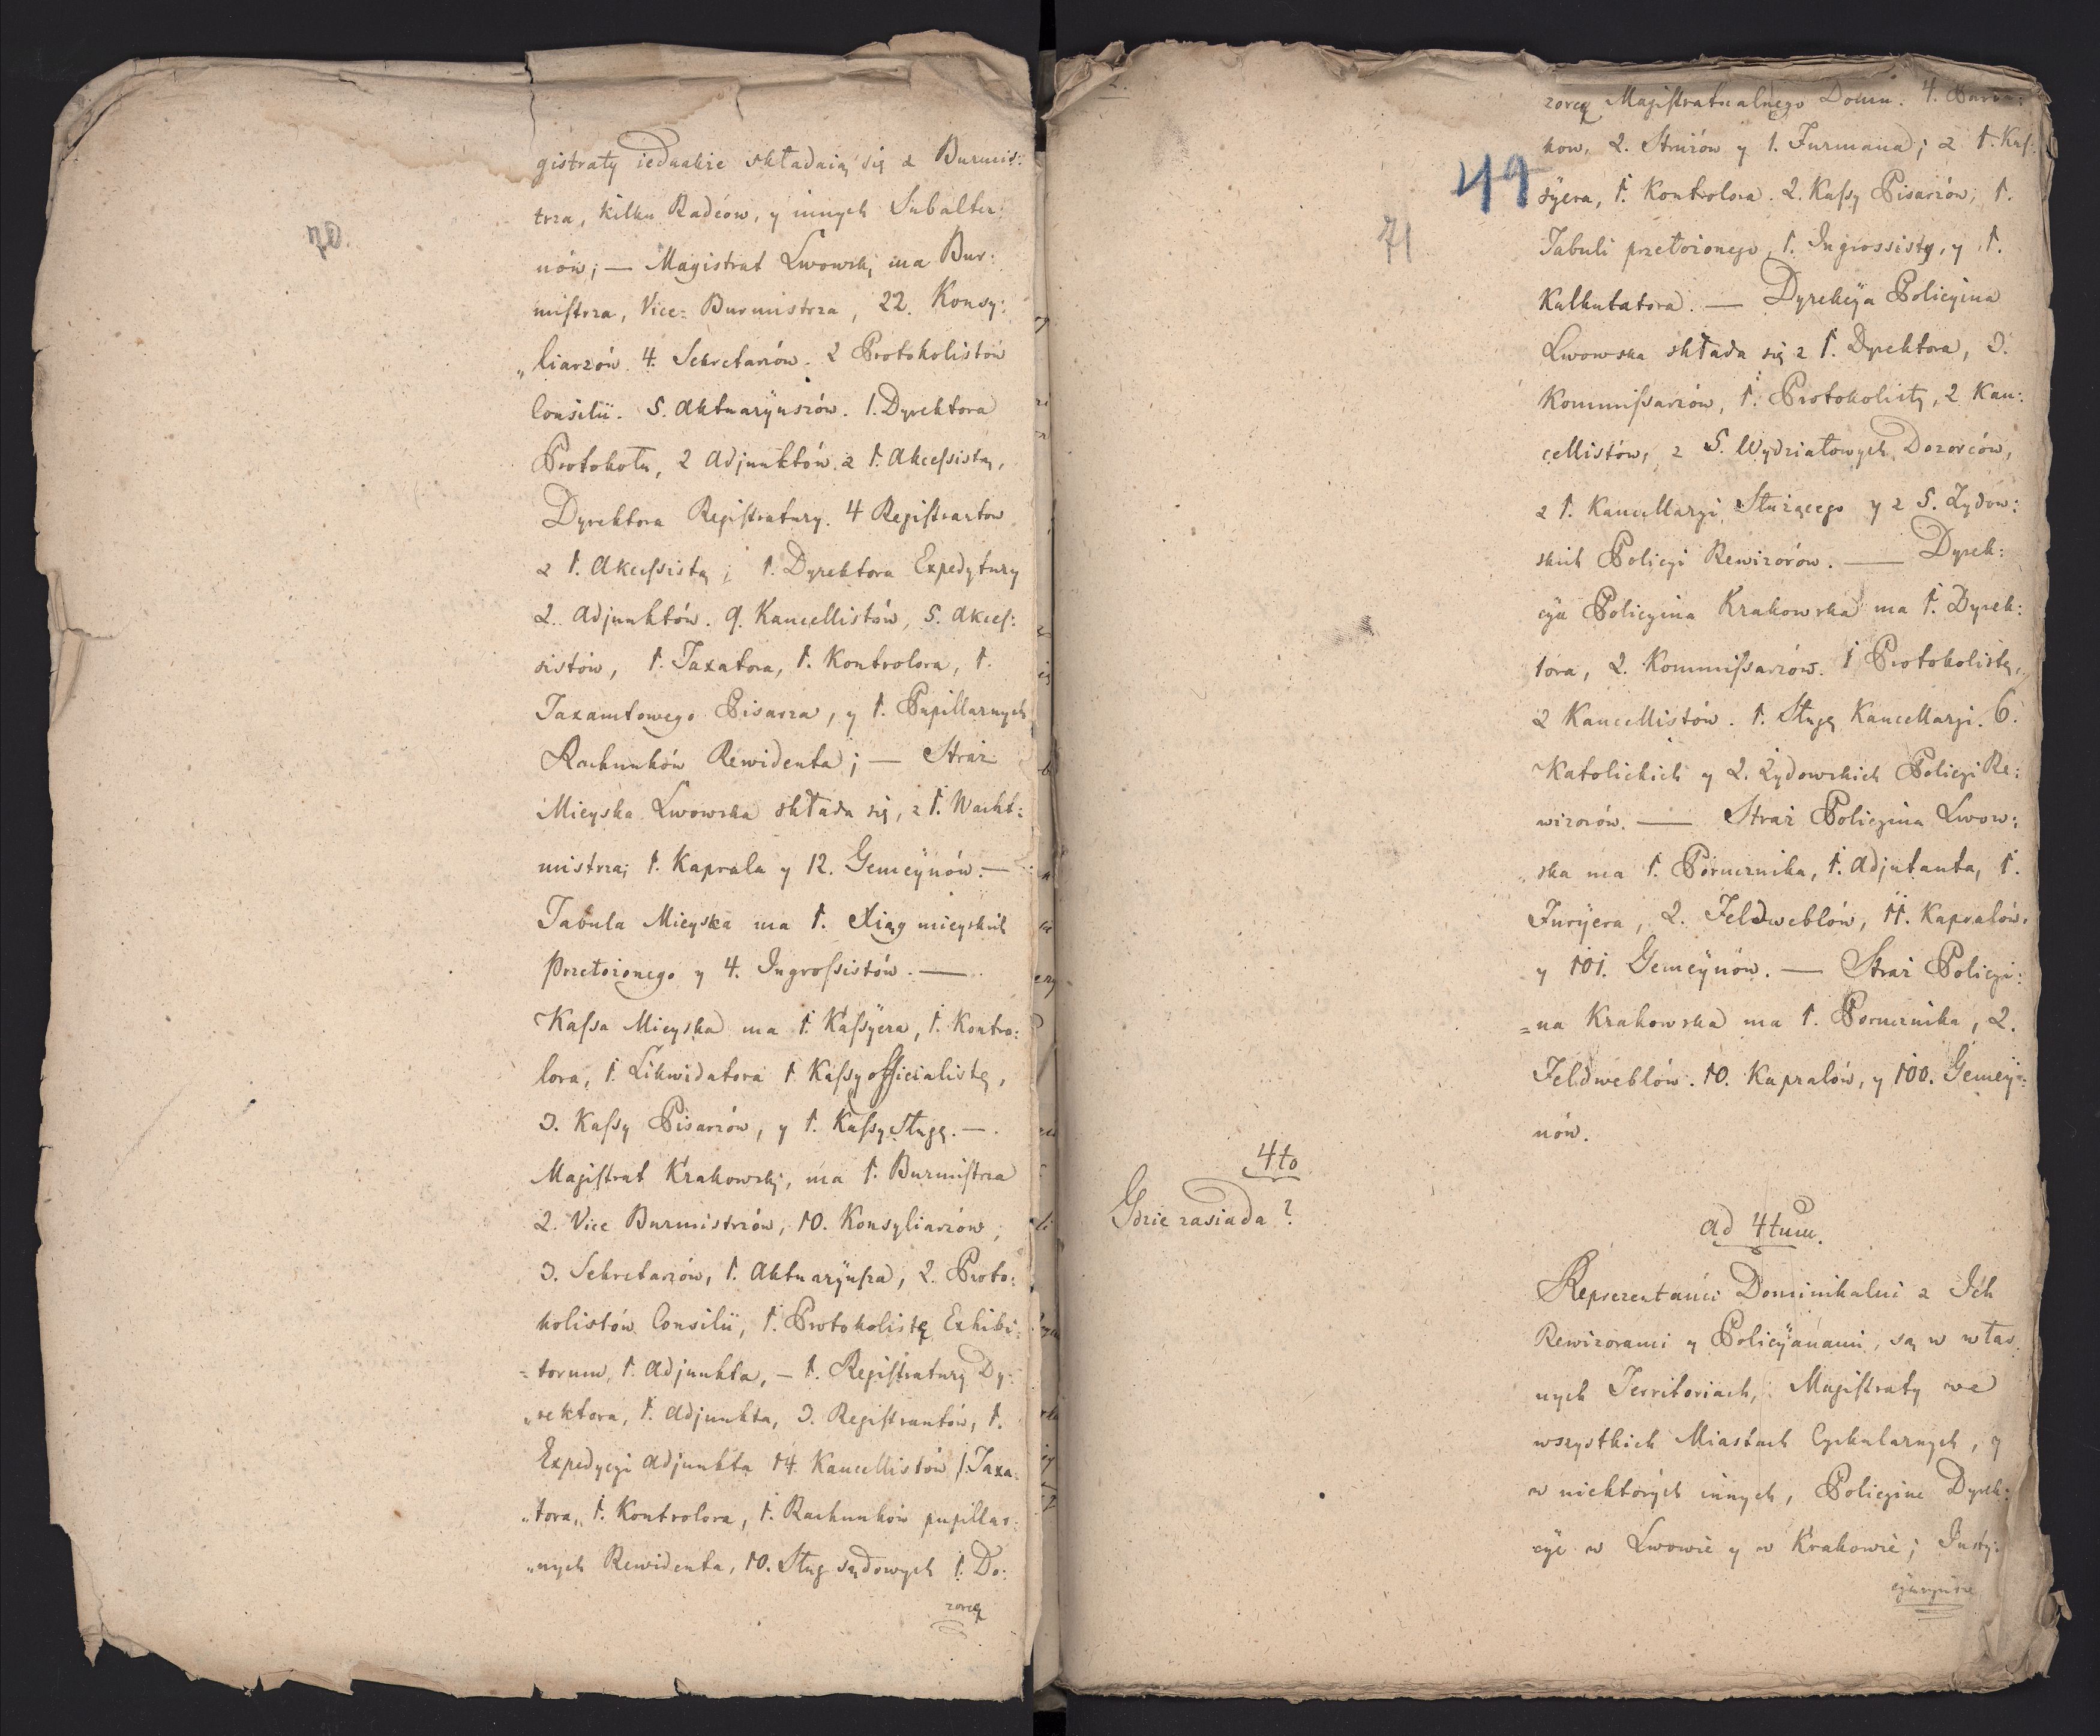 70.
gistraty iednakie składaią się z Burmis:
trza, kilku Radców, y innych Subalter:
nów; — Magistrat Lwowski ma Bur:
mistrza, Vice= Burmistrza, 22. Konsy:
„liarzów. 4. Sekretarzów. 2 Protokolistów
Consilii. 5. Aktuaryuszów. 1. Dyrektora
Protokołu, 2 Adjunktów. z 1. Akcessistą,
Dyrektora Registratury. 4 Registrantow
z 1. Akcessistą; 1. Dyrektora Expedytury
2. Adjunktów. 9. Kancellistów, 5. Akces:
sistów, 1. Taxatora, 1. Kontrolora, 1.
Taxamtowego Pisarza, y 1. Pupillarnych
Rachunków Rewidenta; — Straż
Mieyska Lwowska składa się, z 1. Wacht:
mistrza; 1. Kaprala y 12. Gemeynów. —
Tabula Mieyska ma 1. Xiąg mieyskich
Przełożonego y 4. Ingrossistów. —
Kassa Mieyska ma 1. Kassyera, 1. Kontro:
lora, 1. Likwidatora 1 Kassy officialistę,
3. Kassy Pisarzów, y 1. Kassy sługę. —
Magistrat Krakowski, ma 1. Burmistrza
2. Vice Burmistrzów, 10. Konsyliarzów,
3. Sekretarzów, 1. Aktuaryusza, 2. Proto:
kolistów Consilii, 1. Protokolistę Exhibi:
=torum, 1. Adjunkta, — 1. Registratury Dy:
„rektora, 1. Adjunkta, 3. Registrantów, 1.
Expedycyi Adjunkta 14 Kancellistów 1. Taxa:
„tora, 1. Kontrolora, 1. Rachunków pupillar:
„nych Rewidenta, 10. Sług sądowych 1. Do:
zorcę
49
71
zorcę Magistratualnego Domu. 4.
kow, 2. Stróżów y 1. Furmana; z 1. Kas:
syera, 1. Kontrolora. 2. Kassy Pisarzów, 1.
Tabuli przełożonego, 1. Ingrossisty, y 1.
Kalkulatora. — Dyrekcya Policyina
Lwowska składa się z 1. Dyrektora, 3.
Kommissarzów, 1. Protokolisty, 2 Kan:
cellistów, z 5. Wydziałowych Dozorców,
z 1. Kancellaryi Służącego y z 5. Żydow:
skich Policyi Rewizorów. — Dyrek:
cya Policyina Krakowska ma 1. Dyrek:
tora, 2. Kommissarzów. 1 Protokolistę,
2 Kancellistów. 1. Sługę Kancellaryi. 6.
Katolickich y 2. Żydowskich Policyi Re:
wizorów. — Straż Policyina Lwow:
ska ma 1. Porucznika, 1. Adjutanta, 1.
Furyera, 2. Feldweblów, 11. Kapralów.
y 101. Gemeynów. — Straż Policyi:
=na Krakowska ma 1. Porucznika, 2.
Feldweblów. 10. Kapralów, y 100. Gemey=
nów.
4to
Gdzie zasiada?
Ad 4tum.
Reprezentanci Dominikalni z Ich
Rewizorami y Policyanami, są w włas
nych Territoriach, Magistraty we
wszystkich Miastach Cyrkularnych, y
w niektórych innych, Policyine Dyrek:
cye w Lwowie y w Krakowie; Justy:
cyaryusze